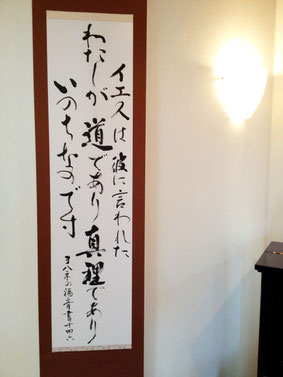 イエスは彼に言われた
わたしが道であり真理であり
いのちなのです
ヨハネの福音書十四六